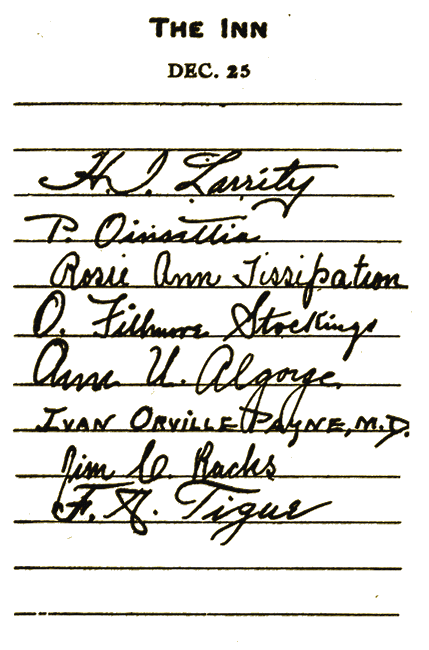 THE INN
DEC. 25
H. I. Larrity
P. Oinsettia
Rosie Ann Tissipation
O. Fillmore Stockings
Ann U. Algorge
IVAN ORVILLE PAYNE, M.D.
Jim C. Racks
F. A. Tigue